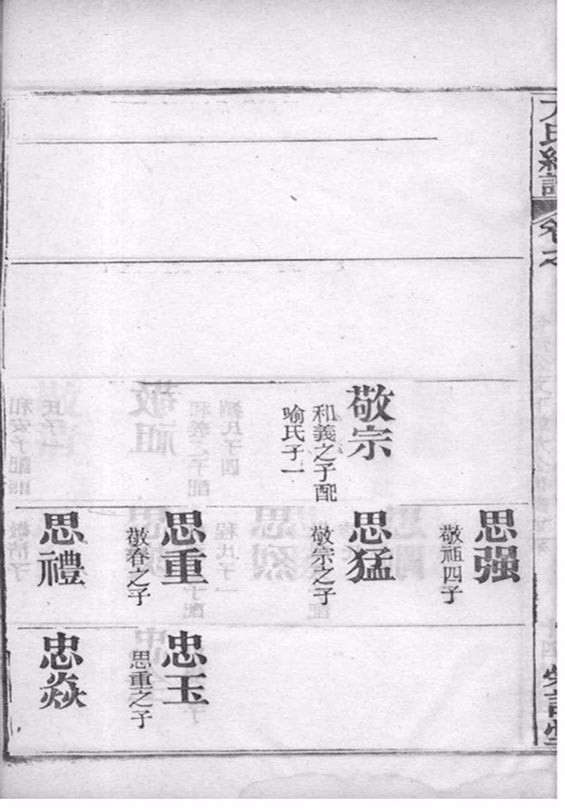 敬宗
和義之子配
喻氏子一
思强
敬祖四子
思猛
敬宗之子
思重
敬春之子
思禮
忠玉
思重之子
忠焱